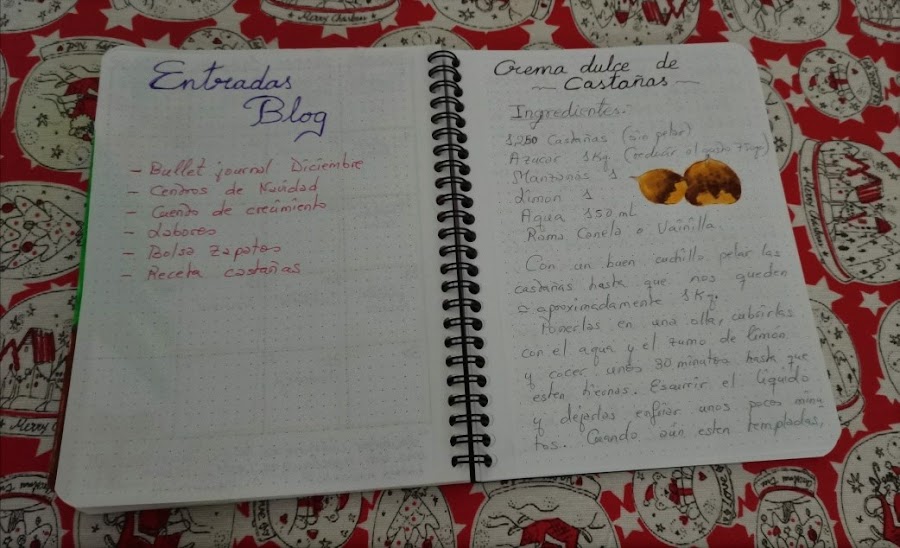 Entradas
Blog
- Bullet journal Diciembre
- Centros de Navidad
- Cuento de crecimiento
- Labores
- Bolsa Zapatos
- Receta castañas
Crema dulce de
~ Castañas ~
Ingredientes:
1,250 Castañas (sin pelar)
Azucar 1Kg. (reducir al gusto
Manzanas 1
Limon 1
Agua 150 ml
Rama Canela o Vainilla.
Con un buen cuchillo pelar las
castañas hasta que nos queden
aproximadamente 1Kg.
Ponerlas en una olla, cubrirlas
con el agua y el zumo de limón
y cocer unos 30 minutos hasta que
esten tiernas. Escurrir el líquido
y dejarlas enfriar unos pocos minu
tos. Cuando aún esten templadas,
Merry Christmas
Merry Christmas